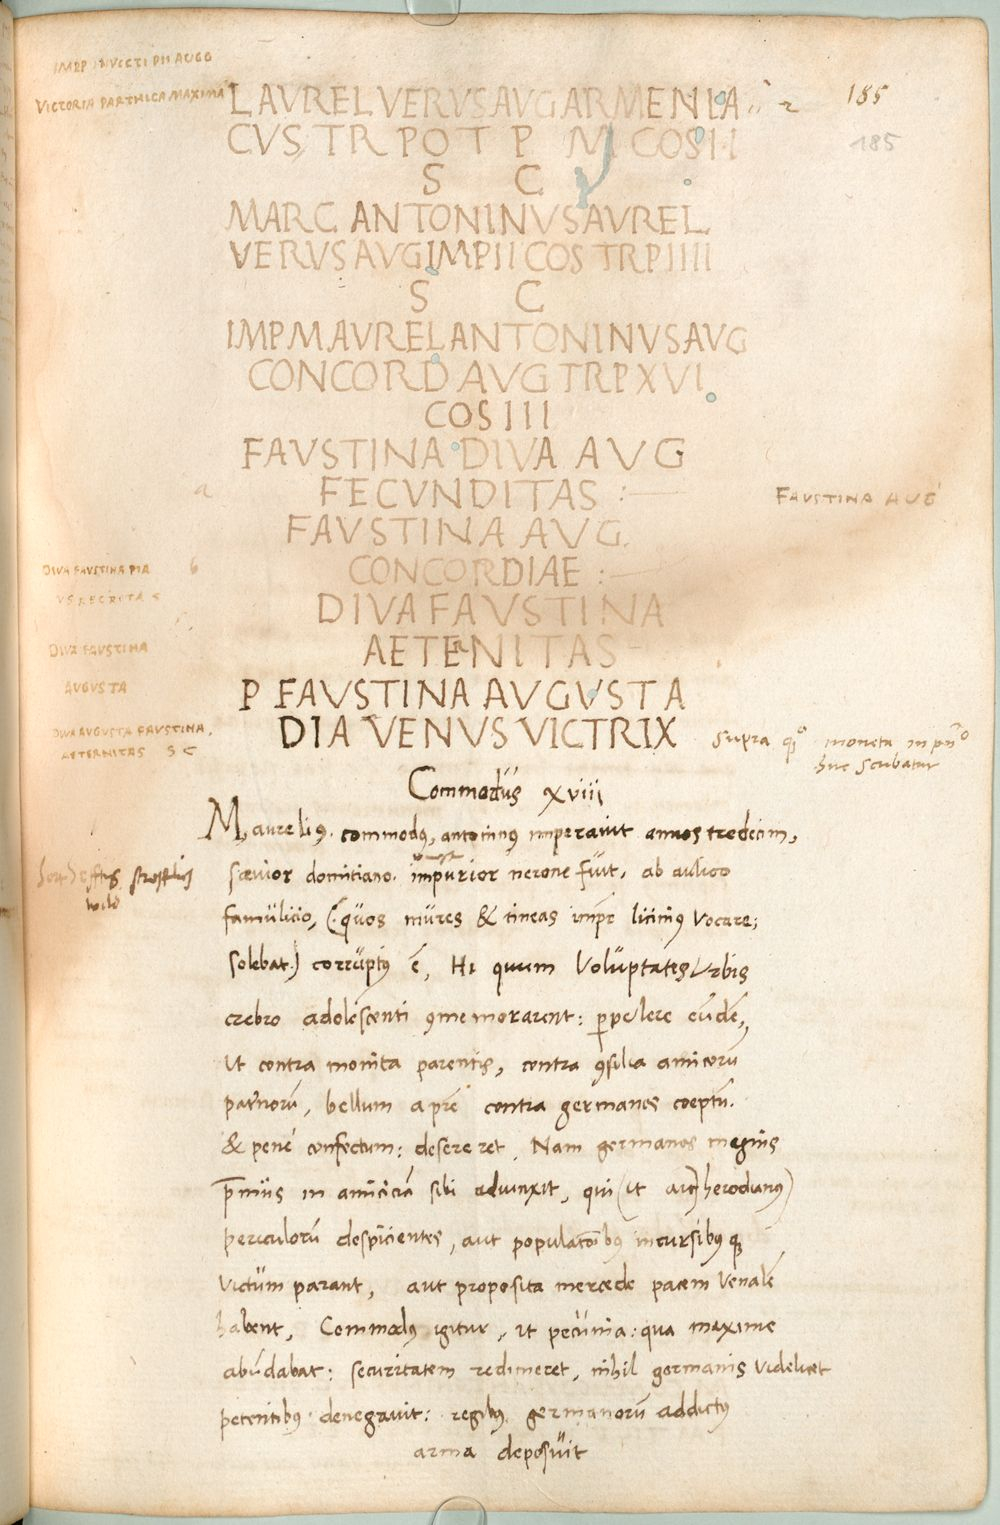 IMPP INVICTI PII AUGG
VICTORIA PARTHICA MAXIMA
185
185
L AVREL VERVS AVG ARMENIA
CVS TR POT P M COS II
S C
MARC ANTONINVS AVREL
VERVS AVG IMP II COS TR P IIII
S C
IMP M AVREL ANTONINVS AVG
CONCORD AVG TR P XVI
COS III
FAVSTINA DIVA AVG
a
FECVNDITAS :
FAVSTINA AUG
FAVSTINA AVG.
CONCORDIAE :
DIVA FAVSTINA PIA
b
DIVA FAVSTINA
AETERNITAS
DIVA FAVSTINA
AUGUSTA
P FAVSTINA AVGVSTA
DIA VENVS VICTRIX
DIVA AUGUSTA FAVSTINA.
AETERNITAS S C
supra moneta in
huc scribatur
Commodus xviii
M. aureliꝰ. commodꝰ, antoninꝰ imperauit annos tredecim,
sævior domitiano. impurior nerone fuit, ab aulico
famulicio, (quos mures & tineas impr liciniꝰ vocare;
solebat.) corruptꝰ ē, Hi quum voluptates Vrbis
crebro adolescenti ꝯmemorarent: ꝑpulere eūdē,
ut contra monita parentis, contra ꝯsilia amicorū
pat'norū, bellum a pr̄e contra germanos coeptū.
& pene confectum: desereret. Nam germanos magnis
p̄miis in amiciciā sibi adiunxit, qui (ut ait herodianꝰ)
periculorū despicientes, aut populatōibꝰ incursibꝰ qꝫ
victum parant, aut proposita mercede pacem venalē
habent, Commodꝰ igitur, ut pecunia: qua maxime
abūdabat: securitatem redimeret, nihil germanis videlicet
petentibꝰ denegauit: regibꝰ germanorū addictꝰ
arma deposuit